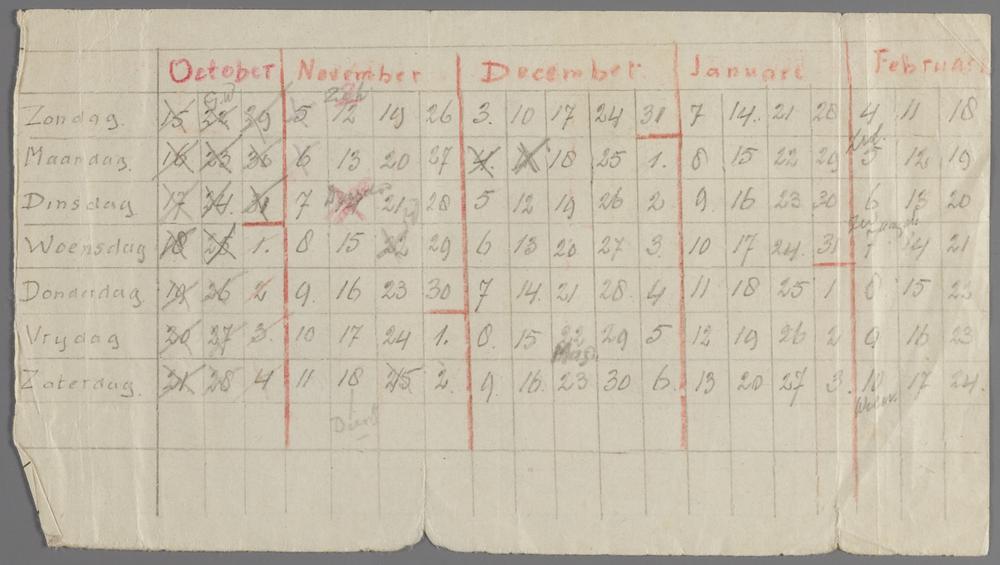 October November December Januari Februari
Zondag. 15 22 29 5 12 19 26 3. 10 17 24 31 7 14. 21 28 4 11 18
Maandag 16 23 30 6 13 20 27 4. 11 18 25 1. 8 15 22 29 5 12 19
Dinsdag 17 24. 31 7 21 28 5 12 19 26 2 9. 16 23 30 6 13 20
Woensdag 18 25 1. 8 15 22 29 6 13 20 27 3. 10 17 24. 31 7 14 21
Donderdag 19 26 2 9. 16 23 30 7 14. 21 28. 4 11 18 25 1 8 15 22
Vrijdag 30 27 3. 10 17 24 1. 8. 15 22 29 5 12 19 26 2 9 16 23
Zaterdag. 31 28 4 11 18 25 2. 9. 16. 23 30 6. 13 20 27 3. 10 17 24.